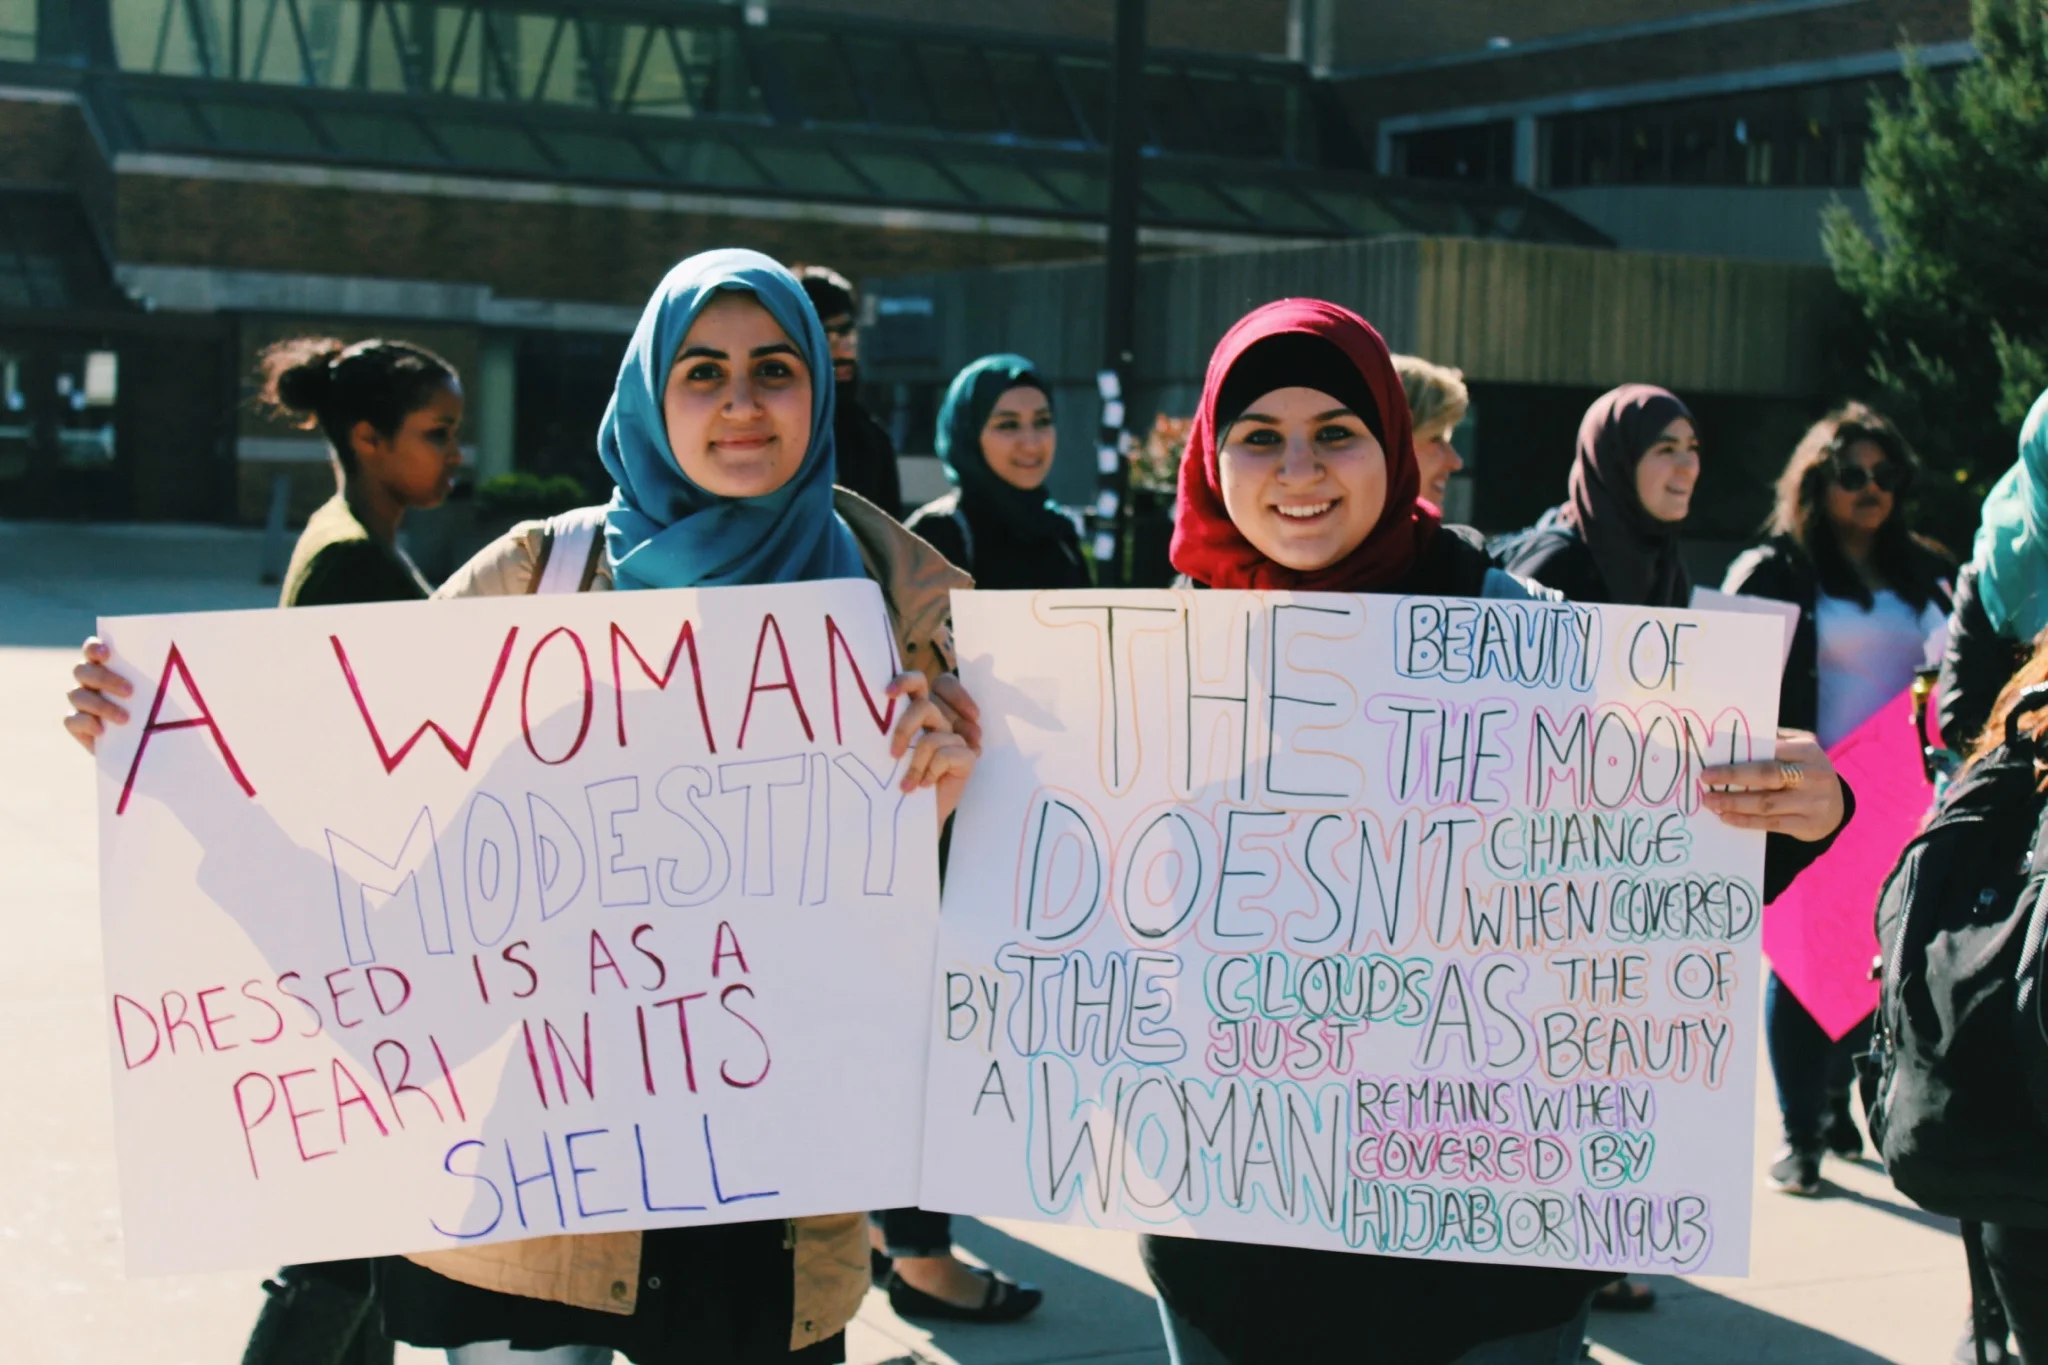 A WOMAN
MODESTIY
DRESSED IS AS A
PEARL IN ITS
SHELL
THE BEAUTY OF
THE MOON
DOESN'T CHANGE
WHEN COVERED
BY THE CLOUDS
JUST AS THE OF
BEAUTY
A WOMAN REMAINS WHEN
COVERED BY
HIJAB OR NIQUB